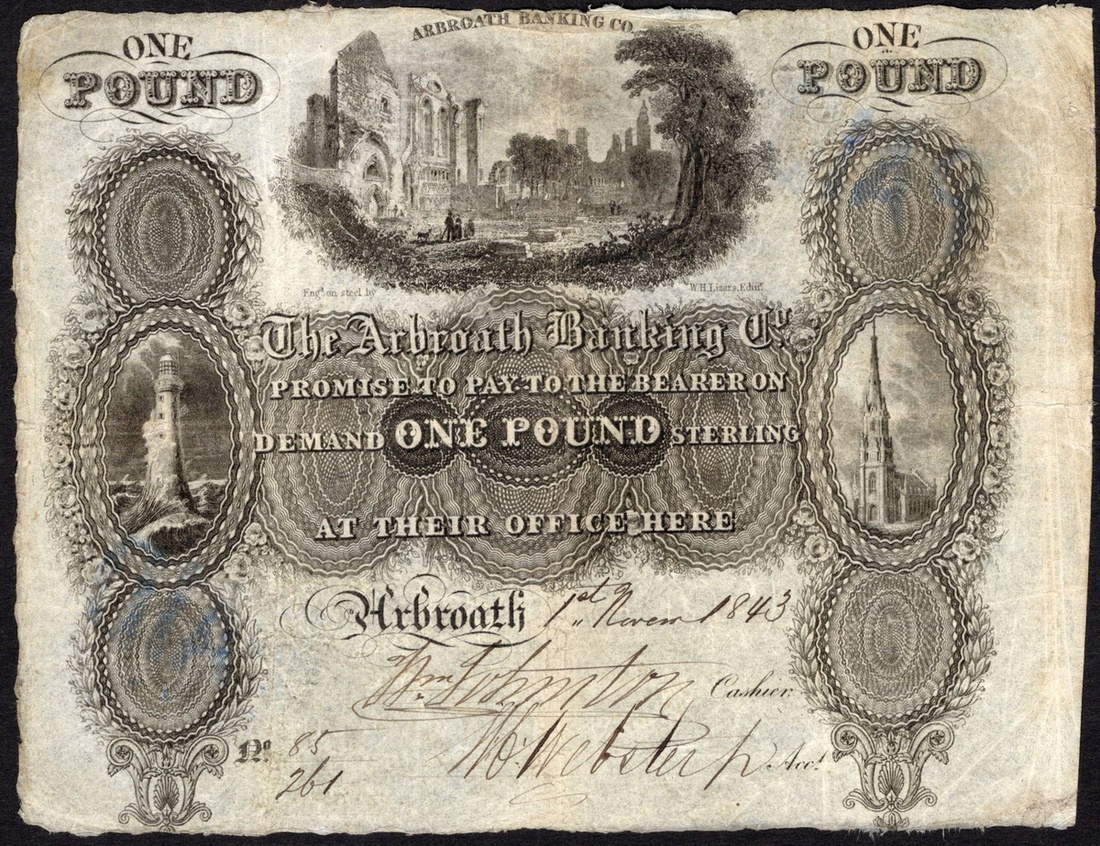 ARBROATH BANKING CO.
ONE
POUND
ONE
POUND
Engd. on steel by W.H. Lizars, Edinr.
The Arbroath Banking Co.
PROMISE TO PAY TO THE BEARER ON
DEMAND ONE POUND STERLING
AT THEIR OFFICE HERE
Arbroath 1st Novem 1843
Wm Johnston Cashier.
Webster Acct.
No. 85
261